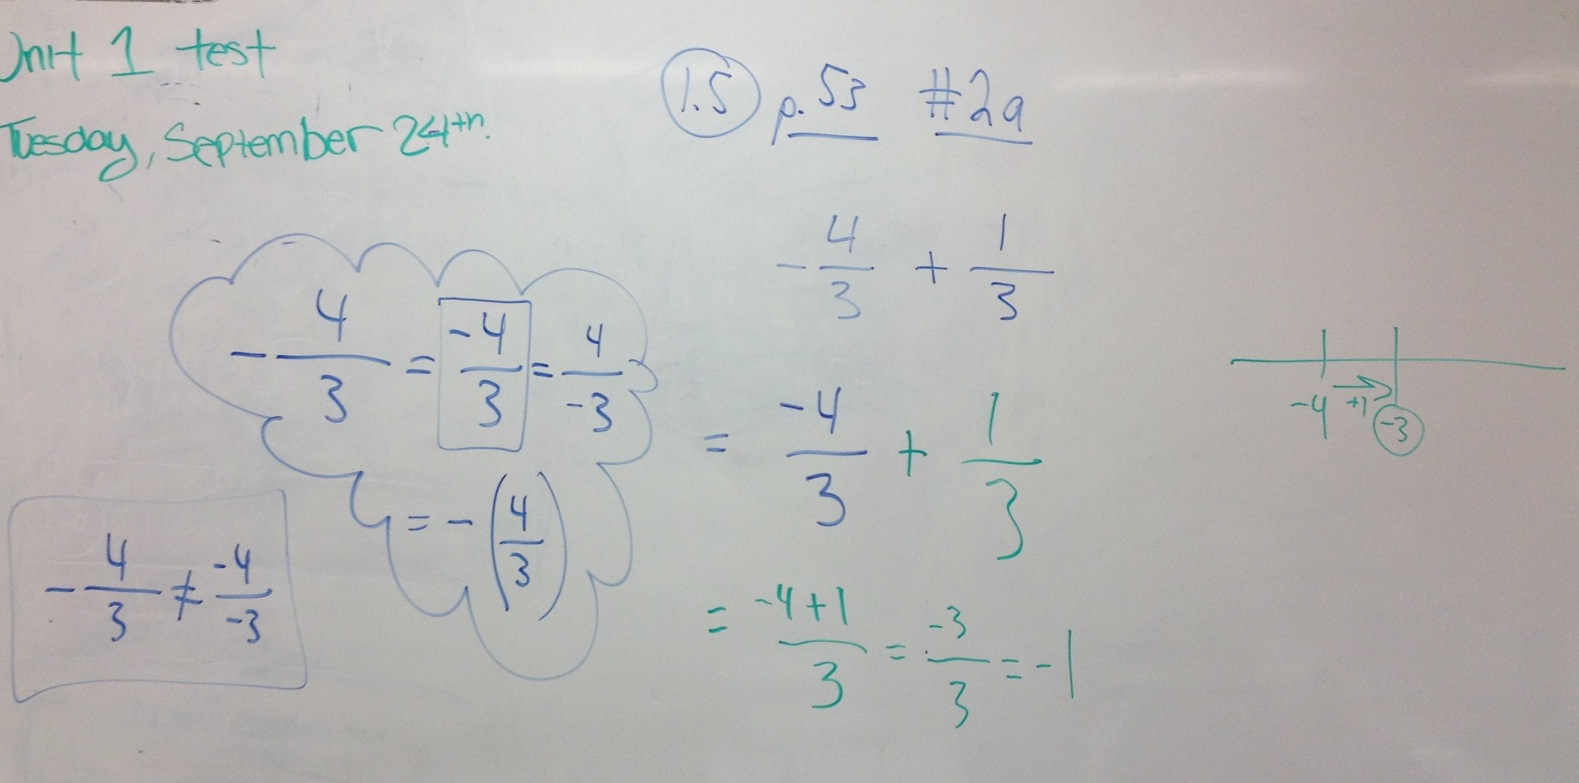 Unit 1 test
Tuesday, September 24th.
1.5 p. 53 #2a
-4/3 + 1/3
= -4/3 + 1/3
= (-4+1)/3 = -3/3 = -1
-4/3 = -4/3 = 4/-3
= -(4/3)
-4/3 ≠ -4/-3
-4 +1 -3